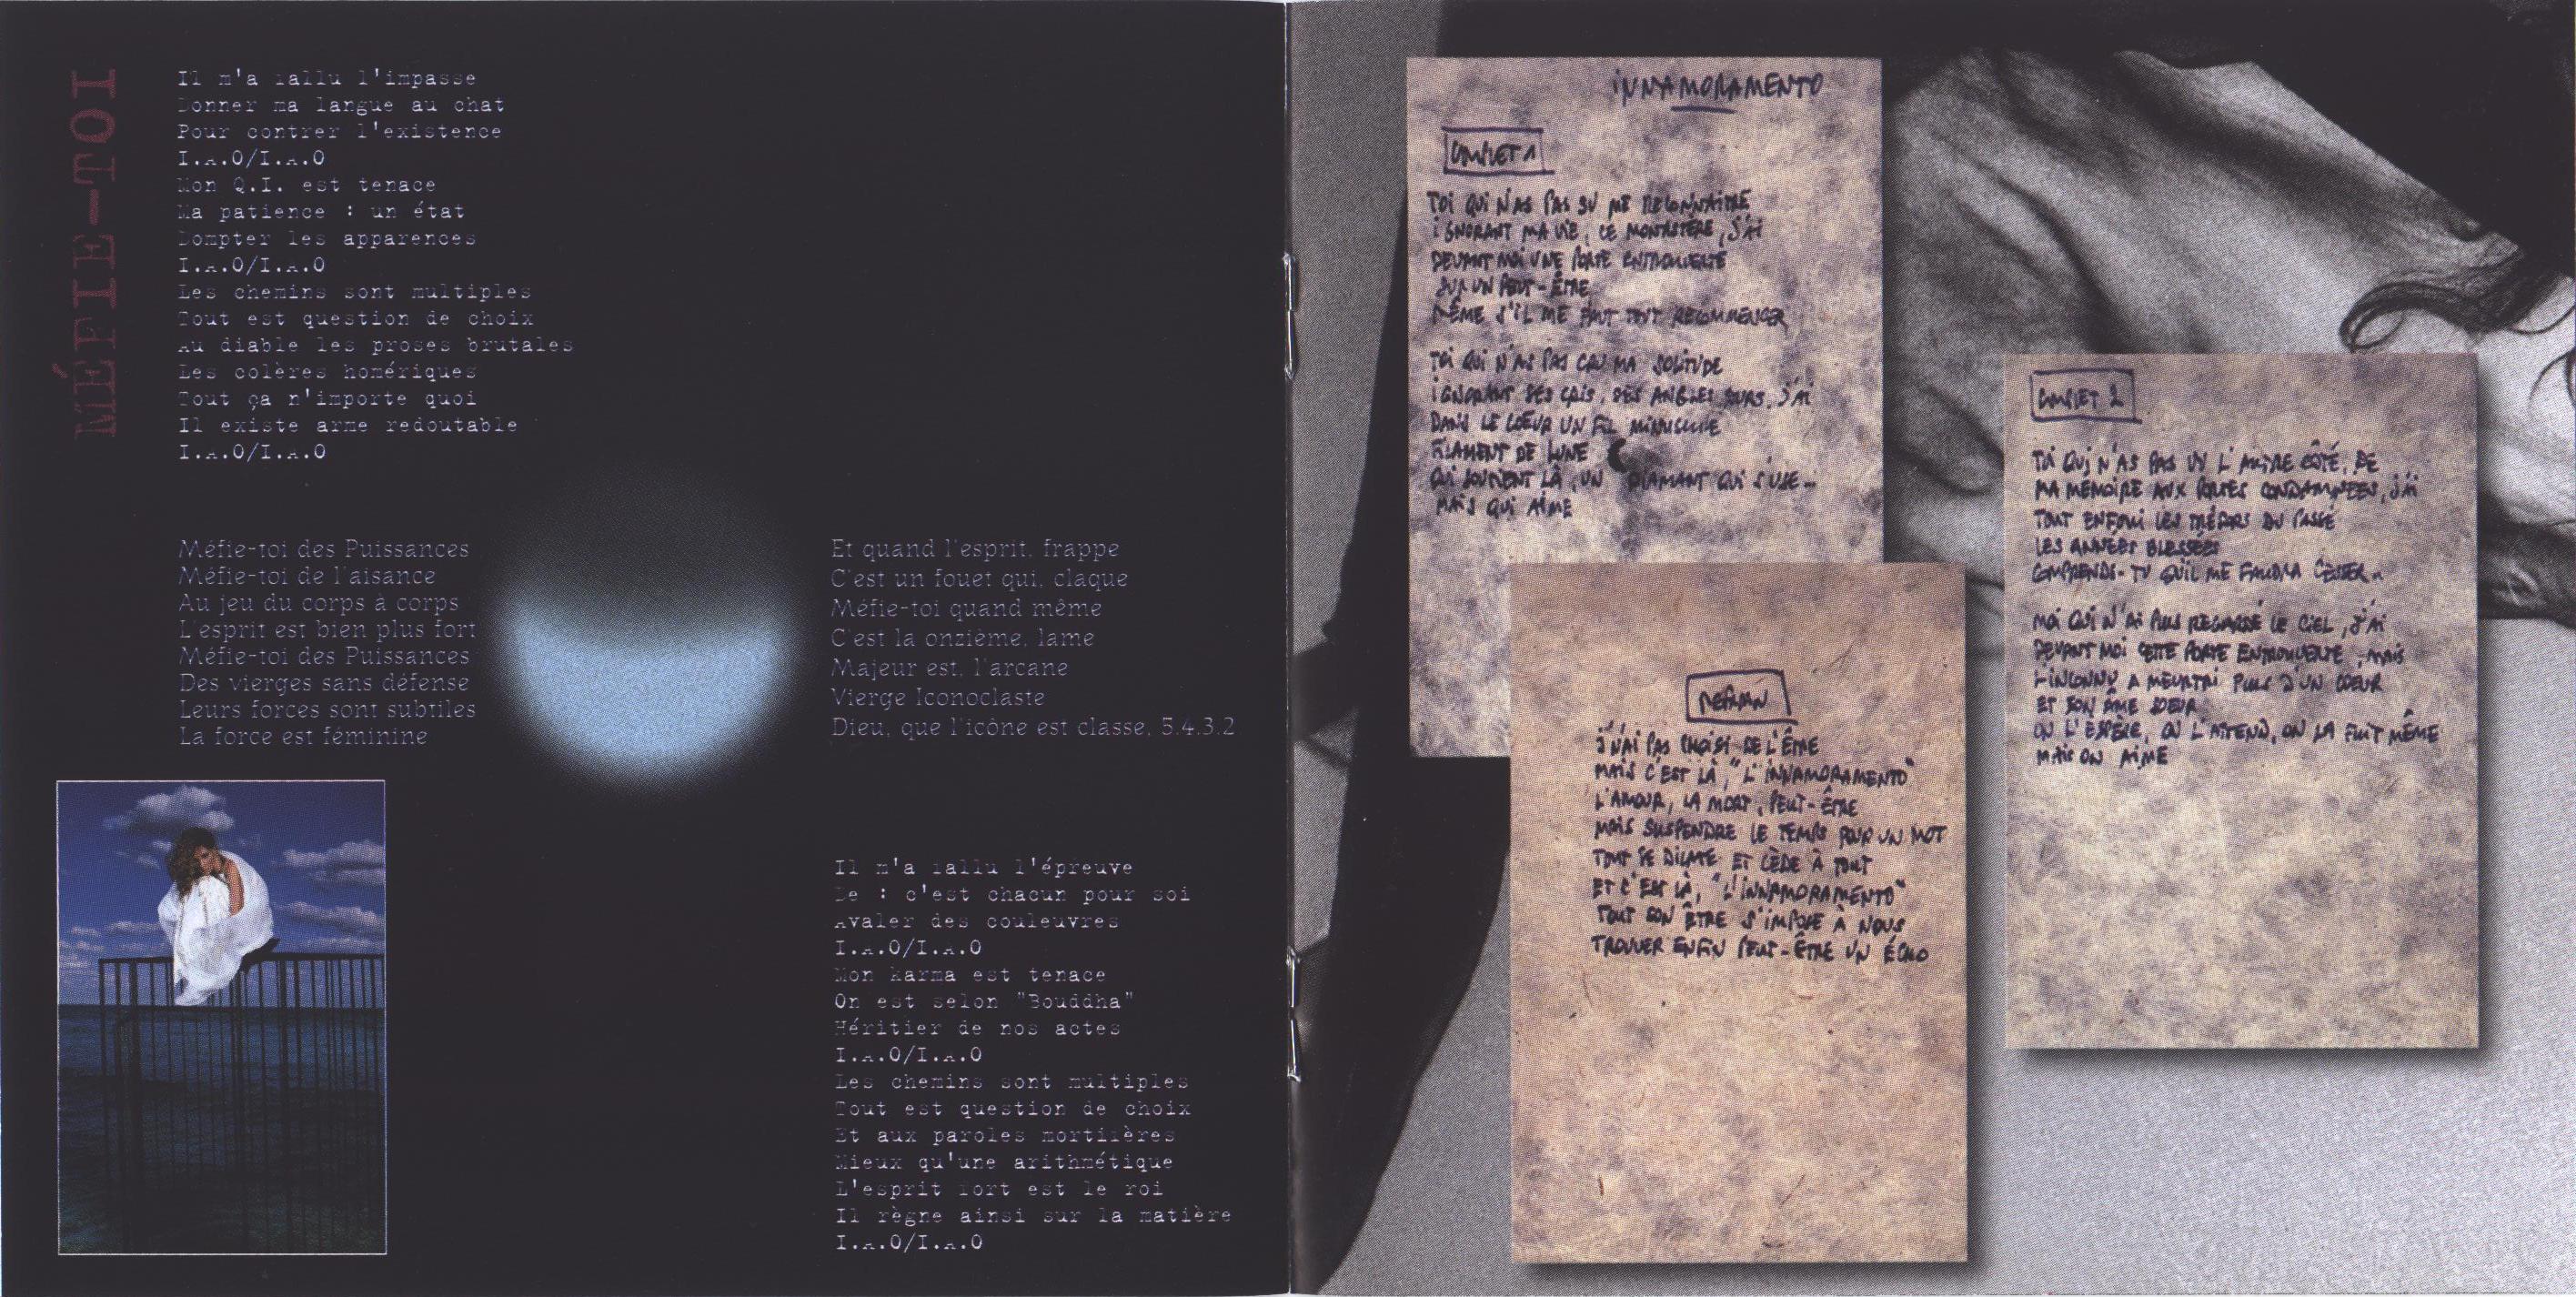 MÉFIE-TOI
Il m'a fallu l'impasse
Donner ma langue au chat
Pour contrer l'existence
I.A.O/I.A.O
Mon Q.I. est tenace
Ma patience : un état
Dompter les apparences
I.A.O/I.A.O
Les chemins sont multiples
Tout est question de choix
Au diable les proses brutales
Les colères homériques
Tout ça n'importe quoi
Il existe arme redoutable
I.A.O/I.A.O
Méfie-toi des Puissances
Méfie-toi de l'aisance
Au jeu du corps à corps
L'esprit est bien plus fort
Méfie-toi des Puissances
Des vierges sans défense
Leurs forces sont subtiles
La force est féminine
Et quand l'esprit, frappe
C'est un fouet qui, claque
Méfie-toi quand même
C'est la onzième, lame
Majeur est, l'arcane
Vierge Iconoclaste
Dieu, que l'icône est classe, 5.4.3.2
Il m'a fallu l'épreuve
De : c'est chacun pour soi
Avaler des couleuvres
I.A.O/I.A.O
Mon karma est tenace
On est selon "Bouddha"
Héritier de nos actes
I.A.O/I.A.O
Les chemins sont multiples
Tout est question de choix
Et aux paroles mortifères
Mieux qu'une arithmétique
L'esprit fort est le roi
Il règne ainsi sur la matière
I.A.O/I.A.O
INNAMORAMENTO
COUPLET 1
TOI QUI N'AS PAS SU ME RECONNAITRE
IGNORANT MA VIE, CE MONASTÈRE, J'AI
DEVANT MOI UNE PORTE ENTROUVERTE
SUR UN PEUT-ÊTRE
MÊME S'IL ME FAUT TOUT RECOMMENCER
TOI QUI N'AS PAS CRU MA SOLITUDE
IGNORANT SES CRIS, SES ANGLES DURS, J'AI
DANS LE COEUR UN FIL MINUSCULE
FILAMENT DE LUNE
QUI SOUTIENT LÀ, UN DIAMANT QUI S'USE...
MAIS QUI AIME
REFRAIN
J'N'AI PAS CHOISI DE L'ÊTRE
MAIS C'EST LÀ, "L'INNAMORAMENTO"
L'AMOUR, LA MORT, PEUT-ÊTRE
MAIS SUSPENDRE LE TEMPS POUR UN MOT
TOUT SE DILATE ET CÈDE À TOUT
ET C'EST LÀ, "L'INNAMORAMENTO"
TOUT SON ÊTRE S'IMPOSE À NOUS
TROUVER ENFIN PEUT-ÊTRE UN ÉCHO
COUPLET 2
TOI QUI N'AS PAS VU L'AUTRE CÔTÉ, DE
MA MÉMOIRE AUX PORTES CONDAMNÉES, J'AI
TOUT ENFOUI LES TRÉSORS DU PASSÉ
LES ANNÉES BLESSÉES
COMPRENDS-TU QU'IL ME FAUDRA CESSER..
MOI QUI N'AI PLUS REGARDÉ LE CIEL, J'AI
DEVANT MOI CETTE PORTE ENTROUVERTE, MAIS
L'INCONNU A MEURTRI PLUS D'UN COEUR
ET SON ÂME SOEUR
ON L'ESPÈRE, ON L'ATTEND, ON LA FUIT MÊME
MAIS ON AIME